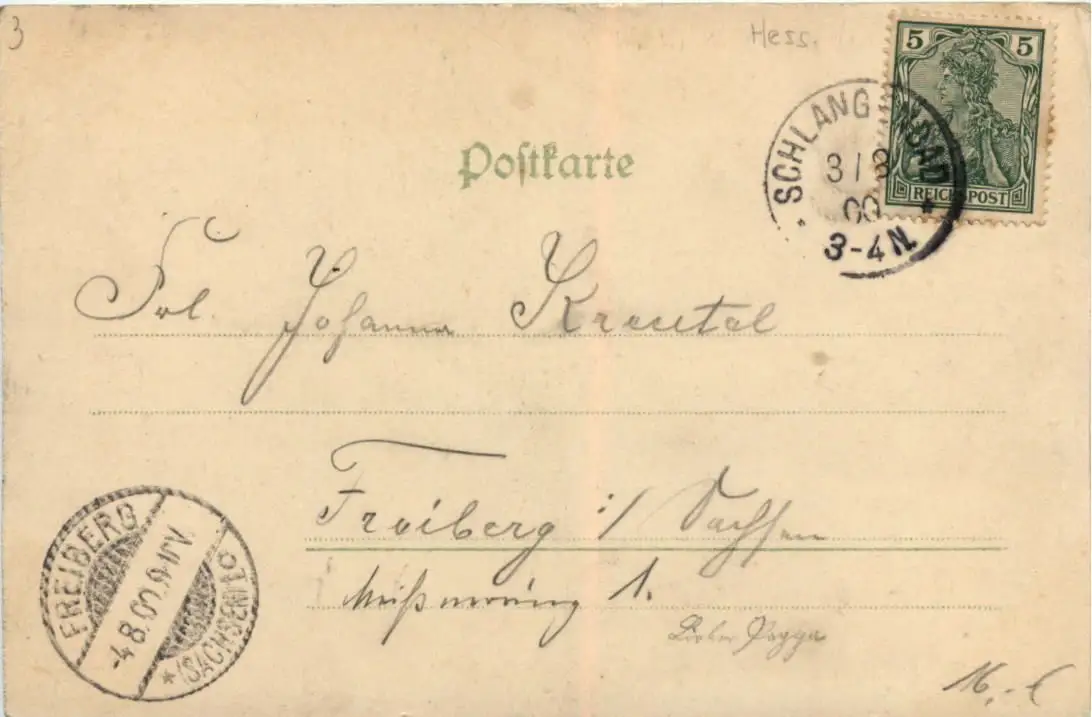 3
Hess.
5 5
REICHSPOST
SCHLANGENBAD
3/8
00
3-4N.
Postkarte
Frl. Johanna Kreutel
Freiberg i/ Sachsen
Meißnerring 1.
FREIBERG
-4.8.00.9-10V.
*(SACHSEN)*
16,-€